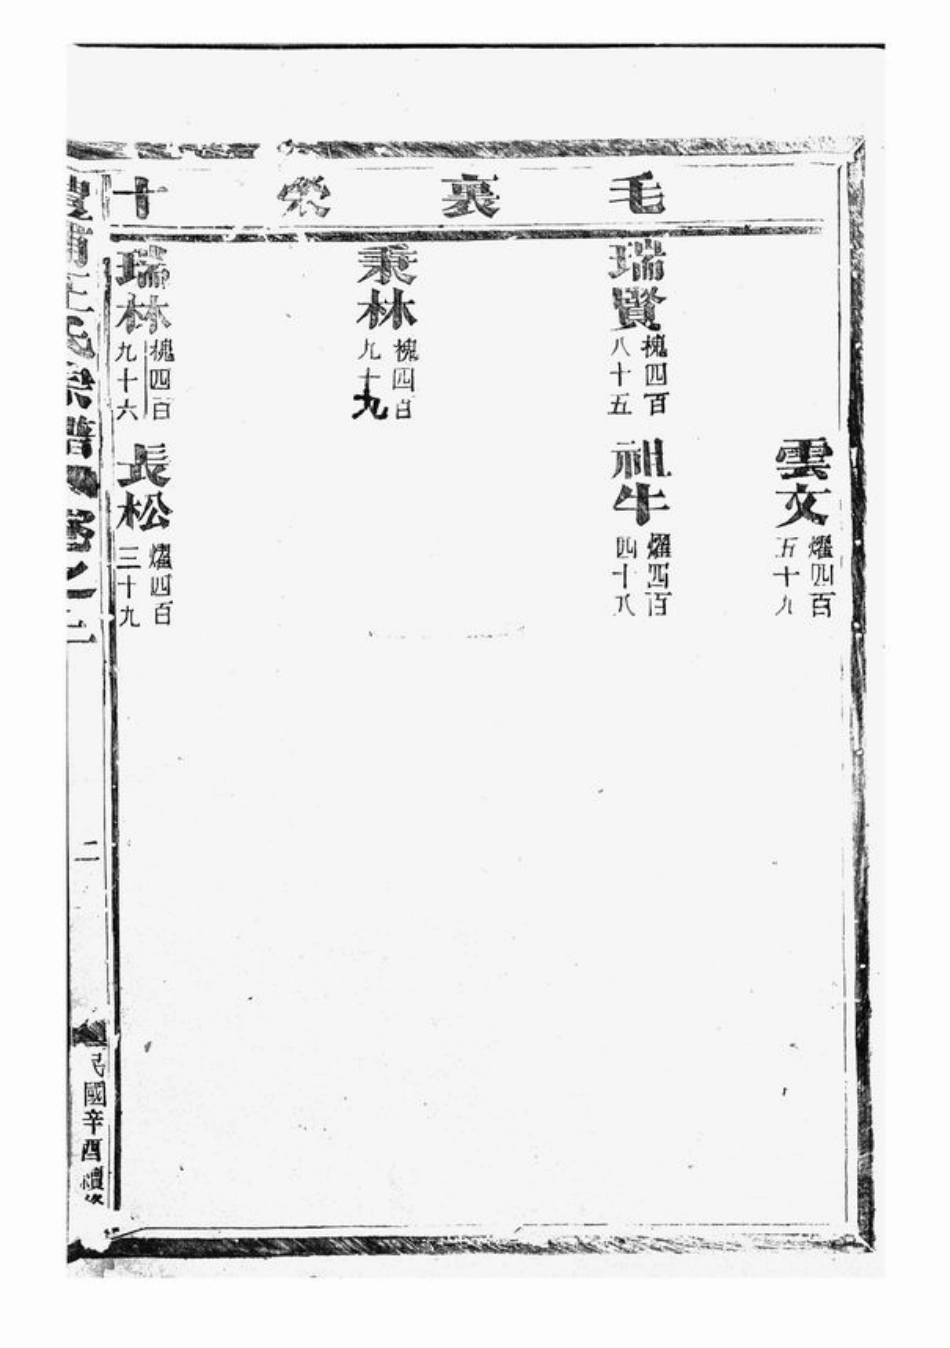 毛裏榮十
雲文
燿四百
五十九
瑞賢
槐四百
八十五
祖牛
燿四百
四十八
秉林
槐四百
九十九
瑞林
槐四百
九十六
長松
燿四百
三十九
王氏宗譜
二
民國辛酉續修